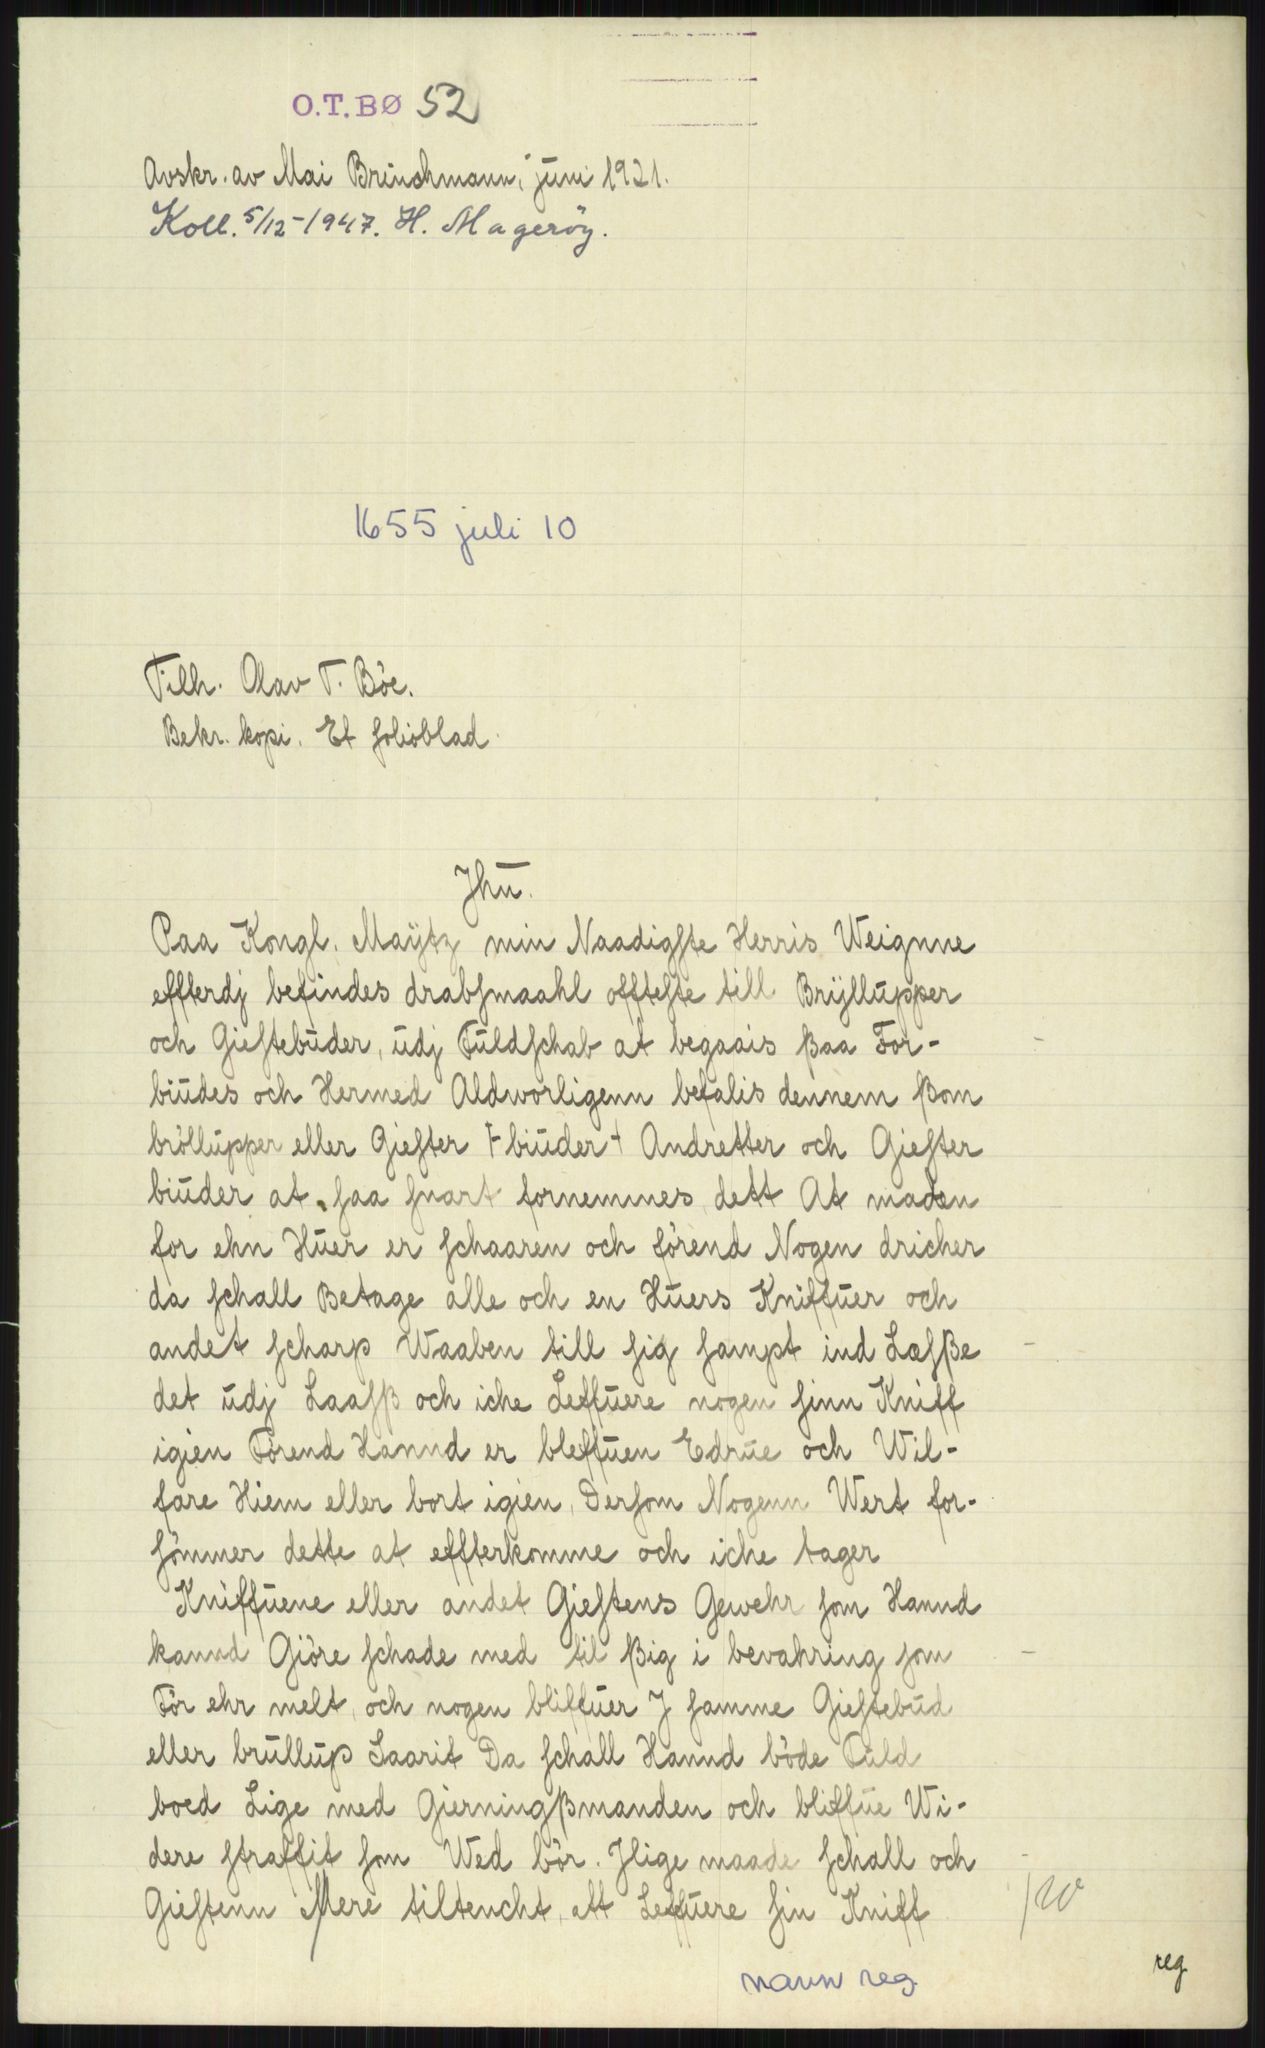 O.T.BØ 52
Avskr. av Mai Brinchmann, juni 1921.
Koll. 5/12-1947. H. Magerøy.
1655 juli 10
Tilh. Olav T. Böe.
Bekr. kopi. Et folioblad.
Jhū.
Paa Kongl. Maÿtz min Naadigste Herris Weignne
effterdj befindes drabsmaahl offteste till Brÿllupper
och Giestebuder, udj Fuldschab at begaais ßaa For-
biudes och Hermed Aldworligenn befalis dennem ßom
bröllupper eller Giester ⊦biuder⊣ Andretter och Giester
biuder at saa snart fornemmes dett At maden
for ehn Huer er schaaren och förend Nogen dricher
da schall Betage alle och en Huers Kniffuer och
andet scharp Waaben till sig sampt ind Læsße
det udj Laasß och iche Leffuere nogen sinn Kniff
igien Förend Hannd er bleffuen Edrue och Wil-
fare Hiem eller bort igien, Dersom Nogenn Wert for-
sömmer dette at effterkomme och iche tager
Kniffuene eller andet Giestens Gewehr som Hannd
kannd Giöre schade med til ßig i bevahring som
För ehr melt, och nogen bliffuer J samme Giestebud
eller brullup Saarit Da schall Hannd böde Fuld
boed Lige med Gierningßmanden och bliffue Wi-
dere straffit som Wed bör. Jlige maade schall och
Giestenn Mere tiltencht att Leffuere sin Kniff
navn reg.
reg